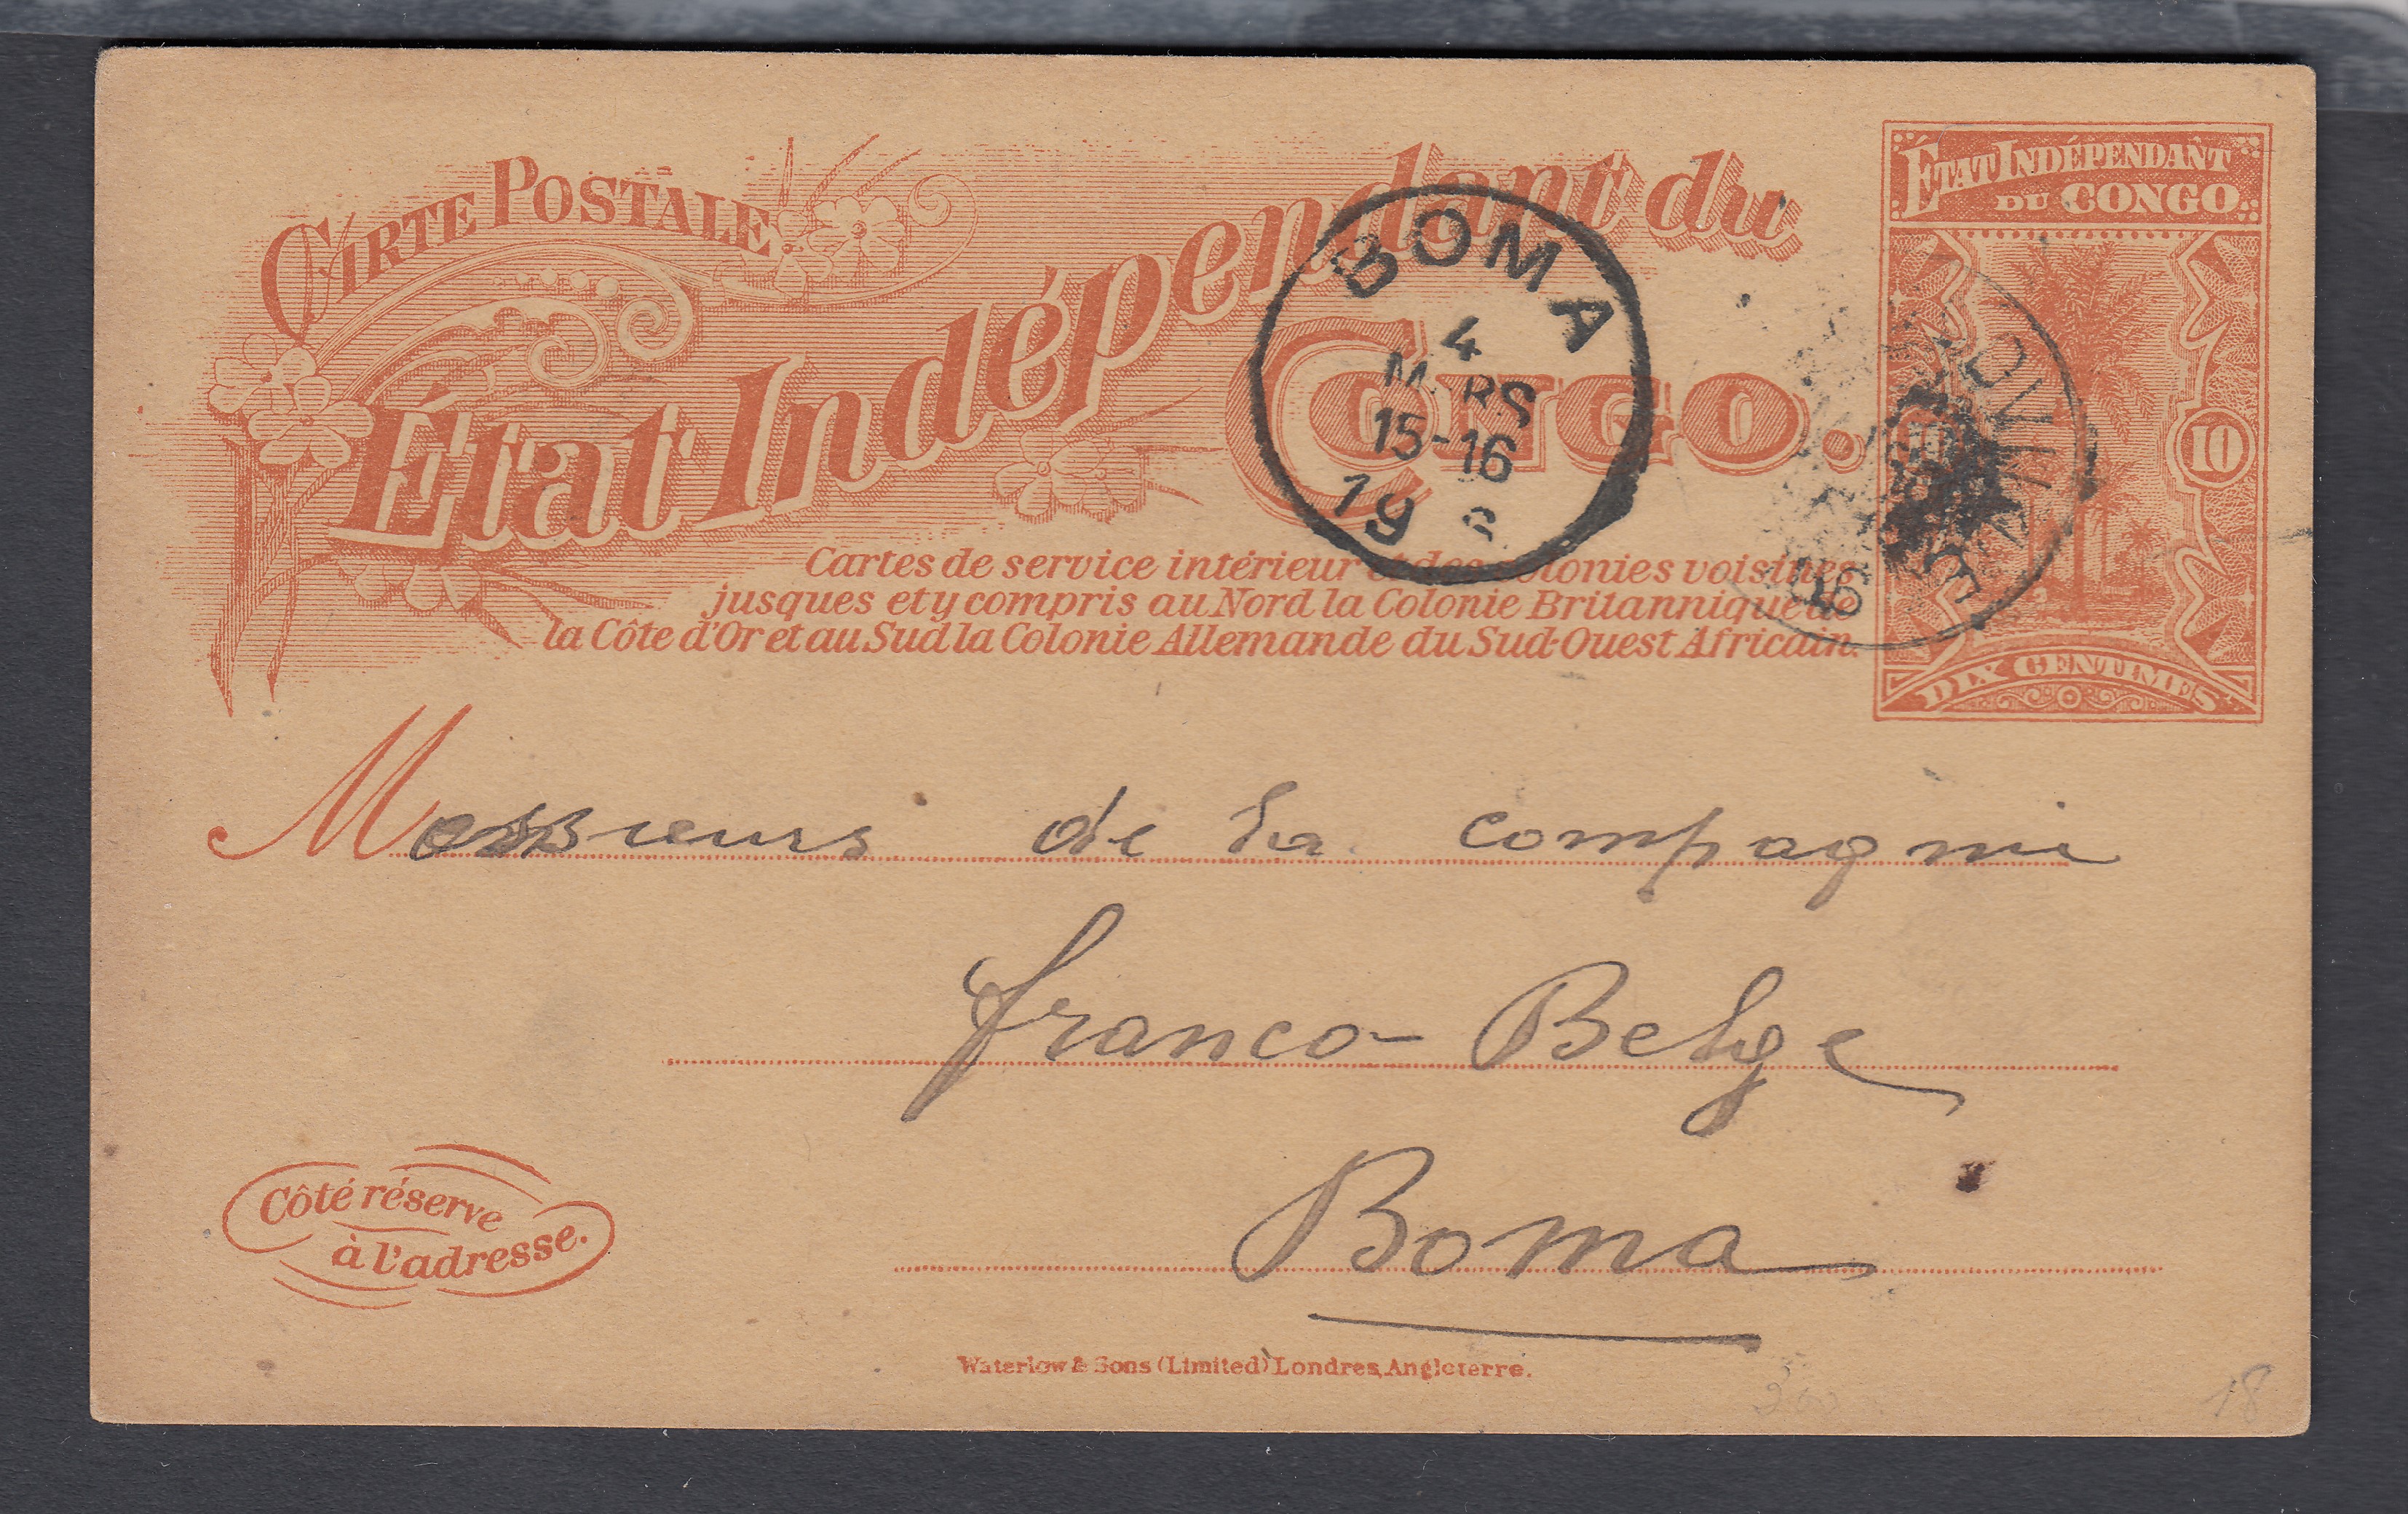 CARTE POSTALE
État Indépendant du
CONGO.
Cartes de service intérieur et des colonies voisines
jusques et y compris au Nord la Colonie Britannique de
la Côte d'Or et au Sud la Colonie Allemande du Sud-Ouest Africain.
BOMA
4
MARS
15-16
19
ÉTAT INDÉPENDANT
DU CONGO
10
DIX CENTIMES
Messieurs de la compagnie
franco-Belge
Boma
Côté réserve
à l'adresse.
Waterlow & Sons (Limited) Londres, Angleterre.
300
18